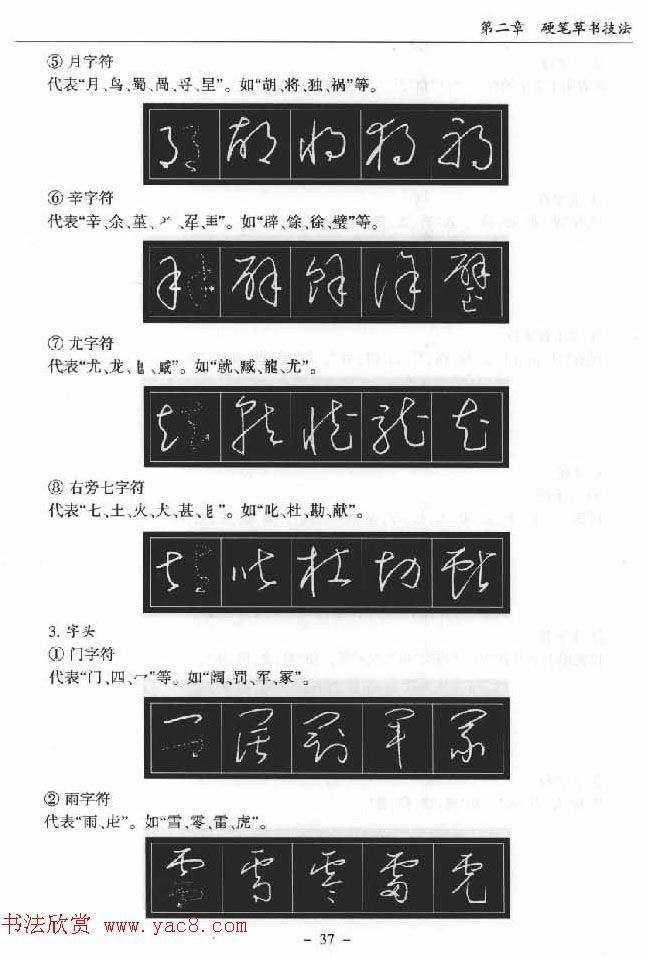 第二章 硬笔草书技法
⑤ 月字符
代表“月、鸟、蜀、咼、寽、星”。如“胡、将、独、祸”等。
⑥ 辛字符
代表“辛、余、堇、、”。如“辟、馀、徐、璧”等。
⑦ 尤字符
代表“尤、龙、、臧”。如“就、臧、龍、尤”。
⑧ 右旁七字符
代表“七、土、火、犬、甚、”。如“叱、杜、勘、献”。
3. 字头
① 门字符
代表“门、四、冖”等。如“阔、罚、军、冢”。
② 雨字符
代表“雨、虍”。如“雪、零、雷、虎”。
书法欣赏 www.yac8.com
- 37 -